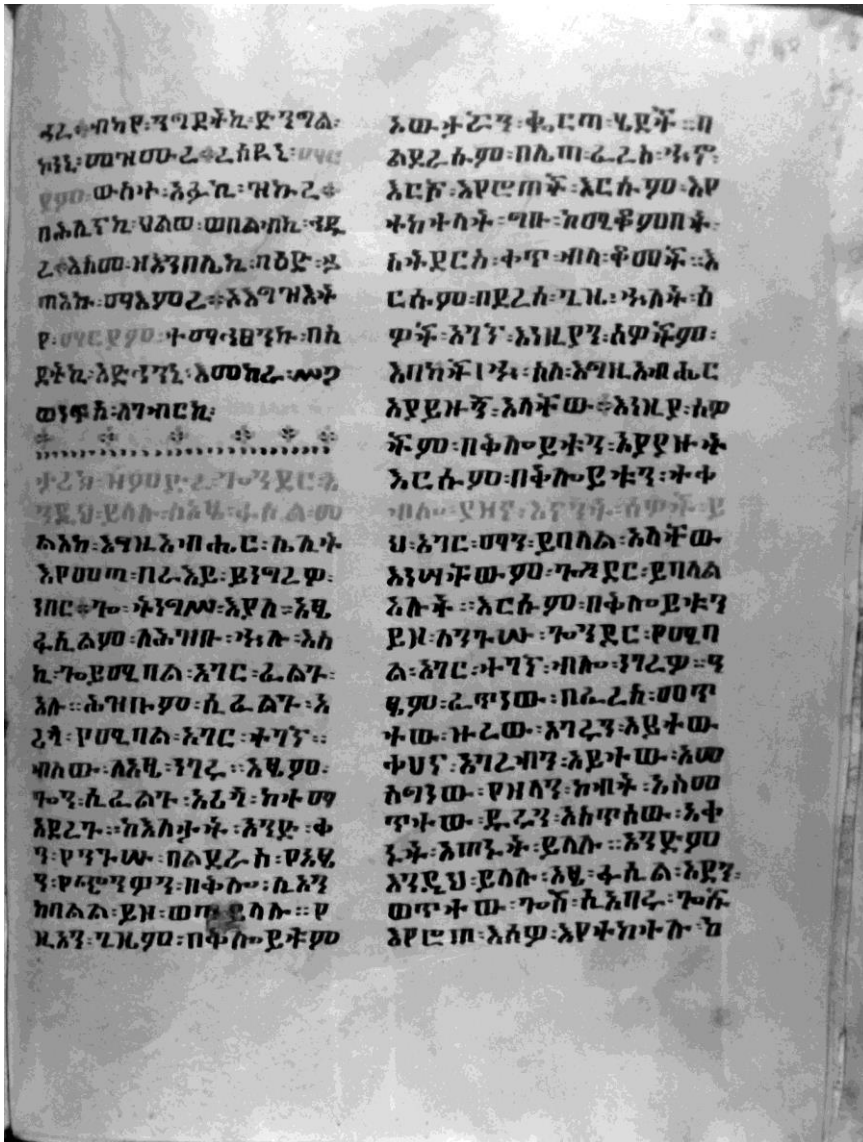 ዳረ፨ብካየ፡ንግደትኪ፡ድንግል፡
ኩነኒ፡መዝሙረ፨ረስዪኒ፡ማር
ያም፡ውስተ፡አፉኪ፡ዝኩረ፨
በሕሊናኪ፡ህልወ፡ወበልብኪ፡ኅዱ
ረ፨እስመ፡ዘእንበሌኪ፡ባዕድ፡ዘ
ጣእኩ፡ማእምረ፨እእግዝእት
የ፡ማርያም፡ተማኅፀንኩ፡በስ
ደትኪ፡አድኅንኒ፡እመከራ፡ሥጋ
ወነፍስ፡ለገብርኪ፡
ታሪክ፡ዘምድረ፡ጐንደር፡እ
ንደህ፡ይላሉ፡ስአፄ፡ፋሲል፡መ
ልአከ፡እግዚአብሔር፡ሌሊት
እየመጣ፡በራእይ፡ይነግረዎ፡
ነበር፨ጐ፡ትነግሣ፡እያለ፡አፄ
ፋሲልም፡ለሕዝቡ፡ኍሉ፡እስ
ኪ፡ጐ፡ይሚባል፡አገር፡ፈልጉ፡
አሉ፡፡ሕዝቡም፡ሲፈልጉ፡አ
ሪጓ፡የሚባል፡አገር፡ተገኘ፡፡
ብለው፡ለአፄ፡ነገሩ፡፡አፄም፡
ጐን፡ሲፈልጉ፡አሪጓ፡ከተማ
አደረጉ፡፡ከእለታት፡አንድ፡ቀ
ን፡የንጉሡ፡በልደራስ፡የአፄ
ን፡የጮንዎን፡በቅሎ፡ሲአን
ከባልል፡ይዘ፡ወጣ፡ይላሉ፡፡የ
ዚአን፡ጊዜም፡በቅሎይቱም
አውታሯን፡ቈርጣ፡ሄደች፡፡በ
ልደራሱም፡በሌጣ፡ፈረስ፡ኍኖ፡
እርሷ፡እየሮጠች፡እርሱም፡እየ
ተከተላት፡ግቡ፡ከሚቾምበት፡
ስትደርስ፡ቀጥ፡ብላ፡ቆመች፡፡እ
ርሱም፡በደረሰ፡ጊዜ፡ኍለት፡ሰ
ዎች፡አገኘ፡እነዚያን፡ሰዎችም፡
እባካችሁ፡ስለ፡እግዚአብሔር
እያይዙኝ፡እላቸው፨እነዚያ፡ሰዎ
ችም፡በቅሎይቱን፡እያያዙት
እርሱም፡በቅሎይቱን፡ተቀ
ብሎ፡ያዘና፡እናንት፡ሰዎች፡ይ
ህ፡አገር፡ማን፡ይባላል፡አላቸው
እነሣቸውም፡ጐዳደር፡ይባላል
አሉት፡፡እርሱም፡በቅሎይቱን
ይዘ፡ለንጉሡ፡ጐንደር፡የሚባ
ል፡አገር፡ተገኘ፡ብሎ፡ነገረዎ፡፡ዓ
ፄም፡ፈጥነው፡በፈረስ፡መጥ
ተው፡ዙረው፡አገሩን፡አይተው
ተህና፡አግረብን፡አይተው፡አመ
ሰግነው፡የዘላን፡ከብት፡አስመ
ጥተው፡ዱሩን፡አስጥሰው፡አቀ
ኑት፡አወኑት፡ይላሉ፡፡አንድም
እንዲህ፡ይላሉ፡አፄ፡ፋሲል፡አደን፡
ወጥተው፡ጐሽ፡ሲአባሩ፡ጐሹ
እየሮጠ፡እሰዎ፡እየተከተሉ፡ከ